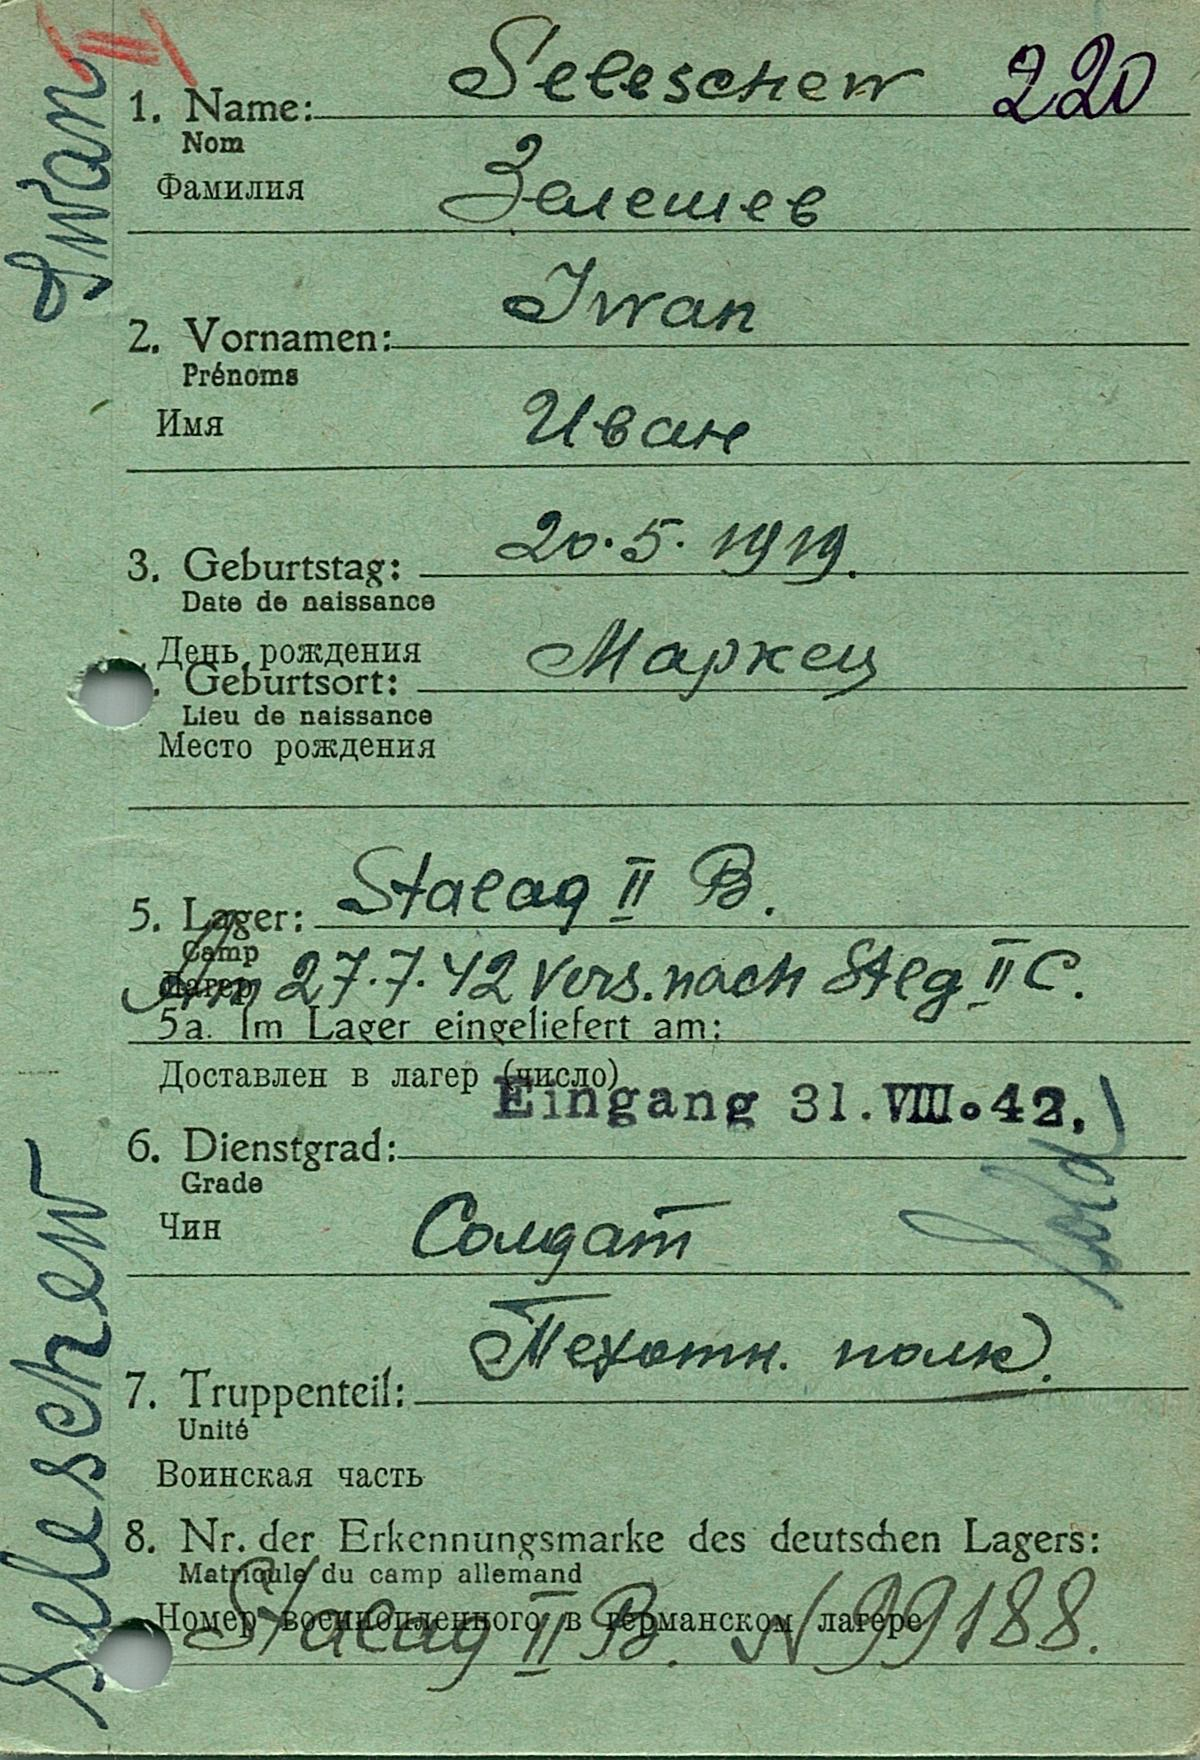 Seleschew 220
1. Name:
Nom
Фамилия Зелешев
Iwan
2. Vornamen:
Prénoms
Имя Иван
3. Geburtstag: 20.5.1919.
Date de naissance
День рождения
. Geburtsort: Маркец
Lieu de naissance
Место рождения
5. Lager: Stalag II B.
Camp
Лагерь
Am 27.7.42 Vers. nach Stlg II C.
5a. Im Lager eingeliefert am:
Доставлен в лагер (число)
Eingang 31.VIII.42.
6. Dienstgrad:
Grade
Чин Солдат
Sold
Пехотн. полк.
7. Truppenteil:
Unité
Воинская часть
8. Nr. der Erkennungsmarke des deutschen Lagers:
Matricule du camp allemand
Номер военнопленного в германском лагере
Stalag II B. N 99188.
Seleschew Iwan